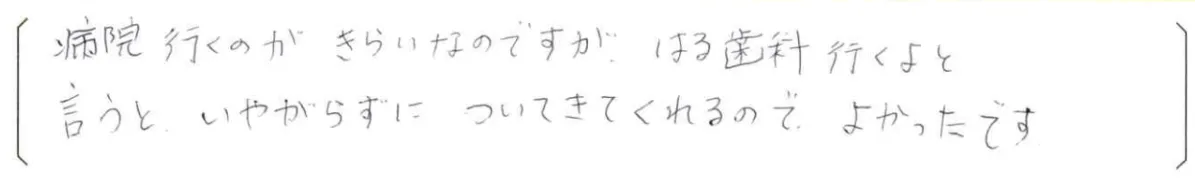 病院行くのが きらいなのですが、はる歯科行くよと
言うと、いやがらずに ついてきてくれるので、よかったです